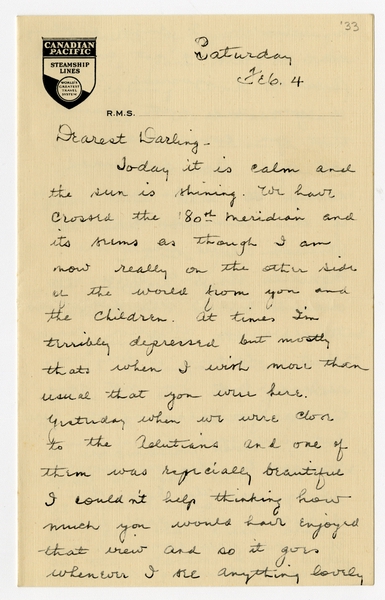 '33
CANADIAN
PACIFIC
STEAMSHIP
LINES
WORLD'S
GREATEST
TRAVEL
SYSTEM
Saturday
Feb. 4
R.M.S.
Dearest Darling -
Today it is calm and
the sun is shining. We have
crossed the 180th meridian and
its seems as though I am
now really on the other side
of the world from you and
the children. At times I'm
terribly depressed but mostly
thats when I wish more than
usual that you were here.
Yesterday when we were close
to the Aelutians and one of
them was especially beautiful
I couldn't help thinking how
much you would have enjoyed
that view and so it goes
whenever I see anything lovely